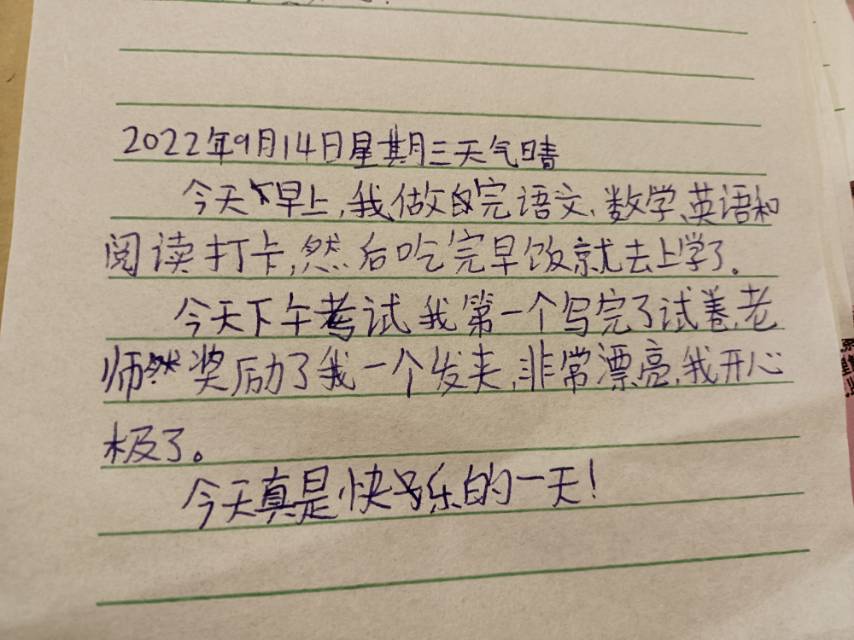 2022年9月14日星期三天气晴
今天早上,我做完语文、数学、英语和
阅读打卡,然后吃完早饭就去上学了。
今天下午考试我第一个写完了试卷,老
师奖励了我一个发夹,非常漂亮,我开心
极了。
今天真是快乐的一天!